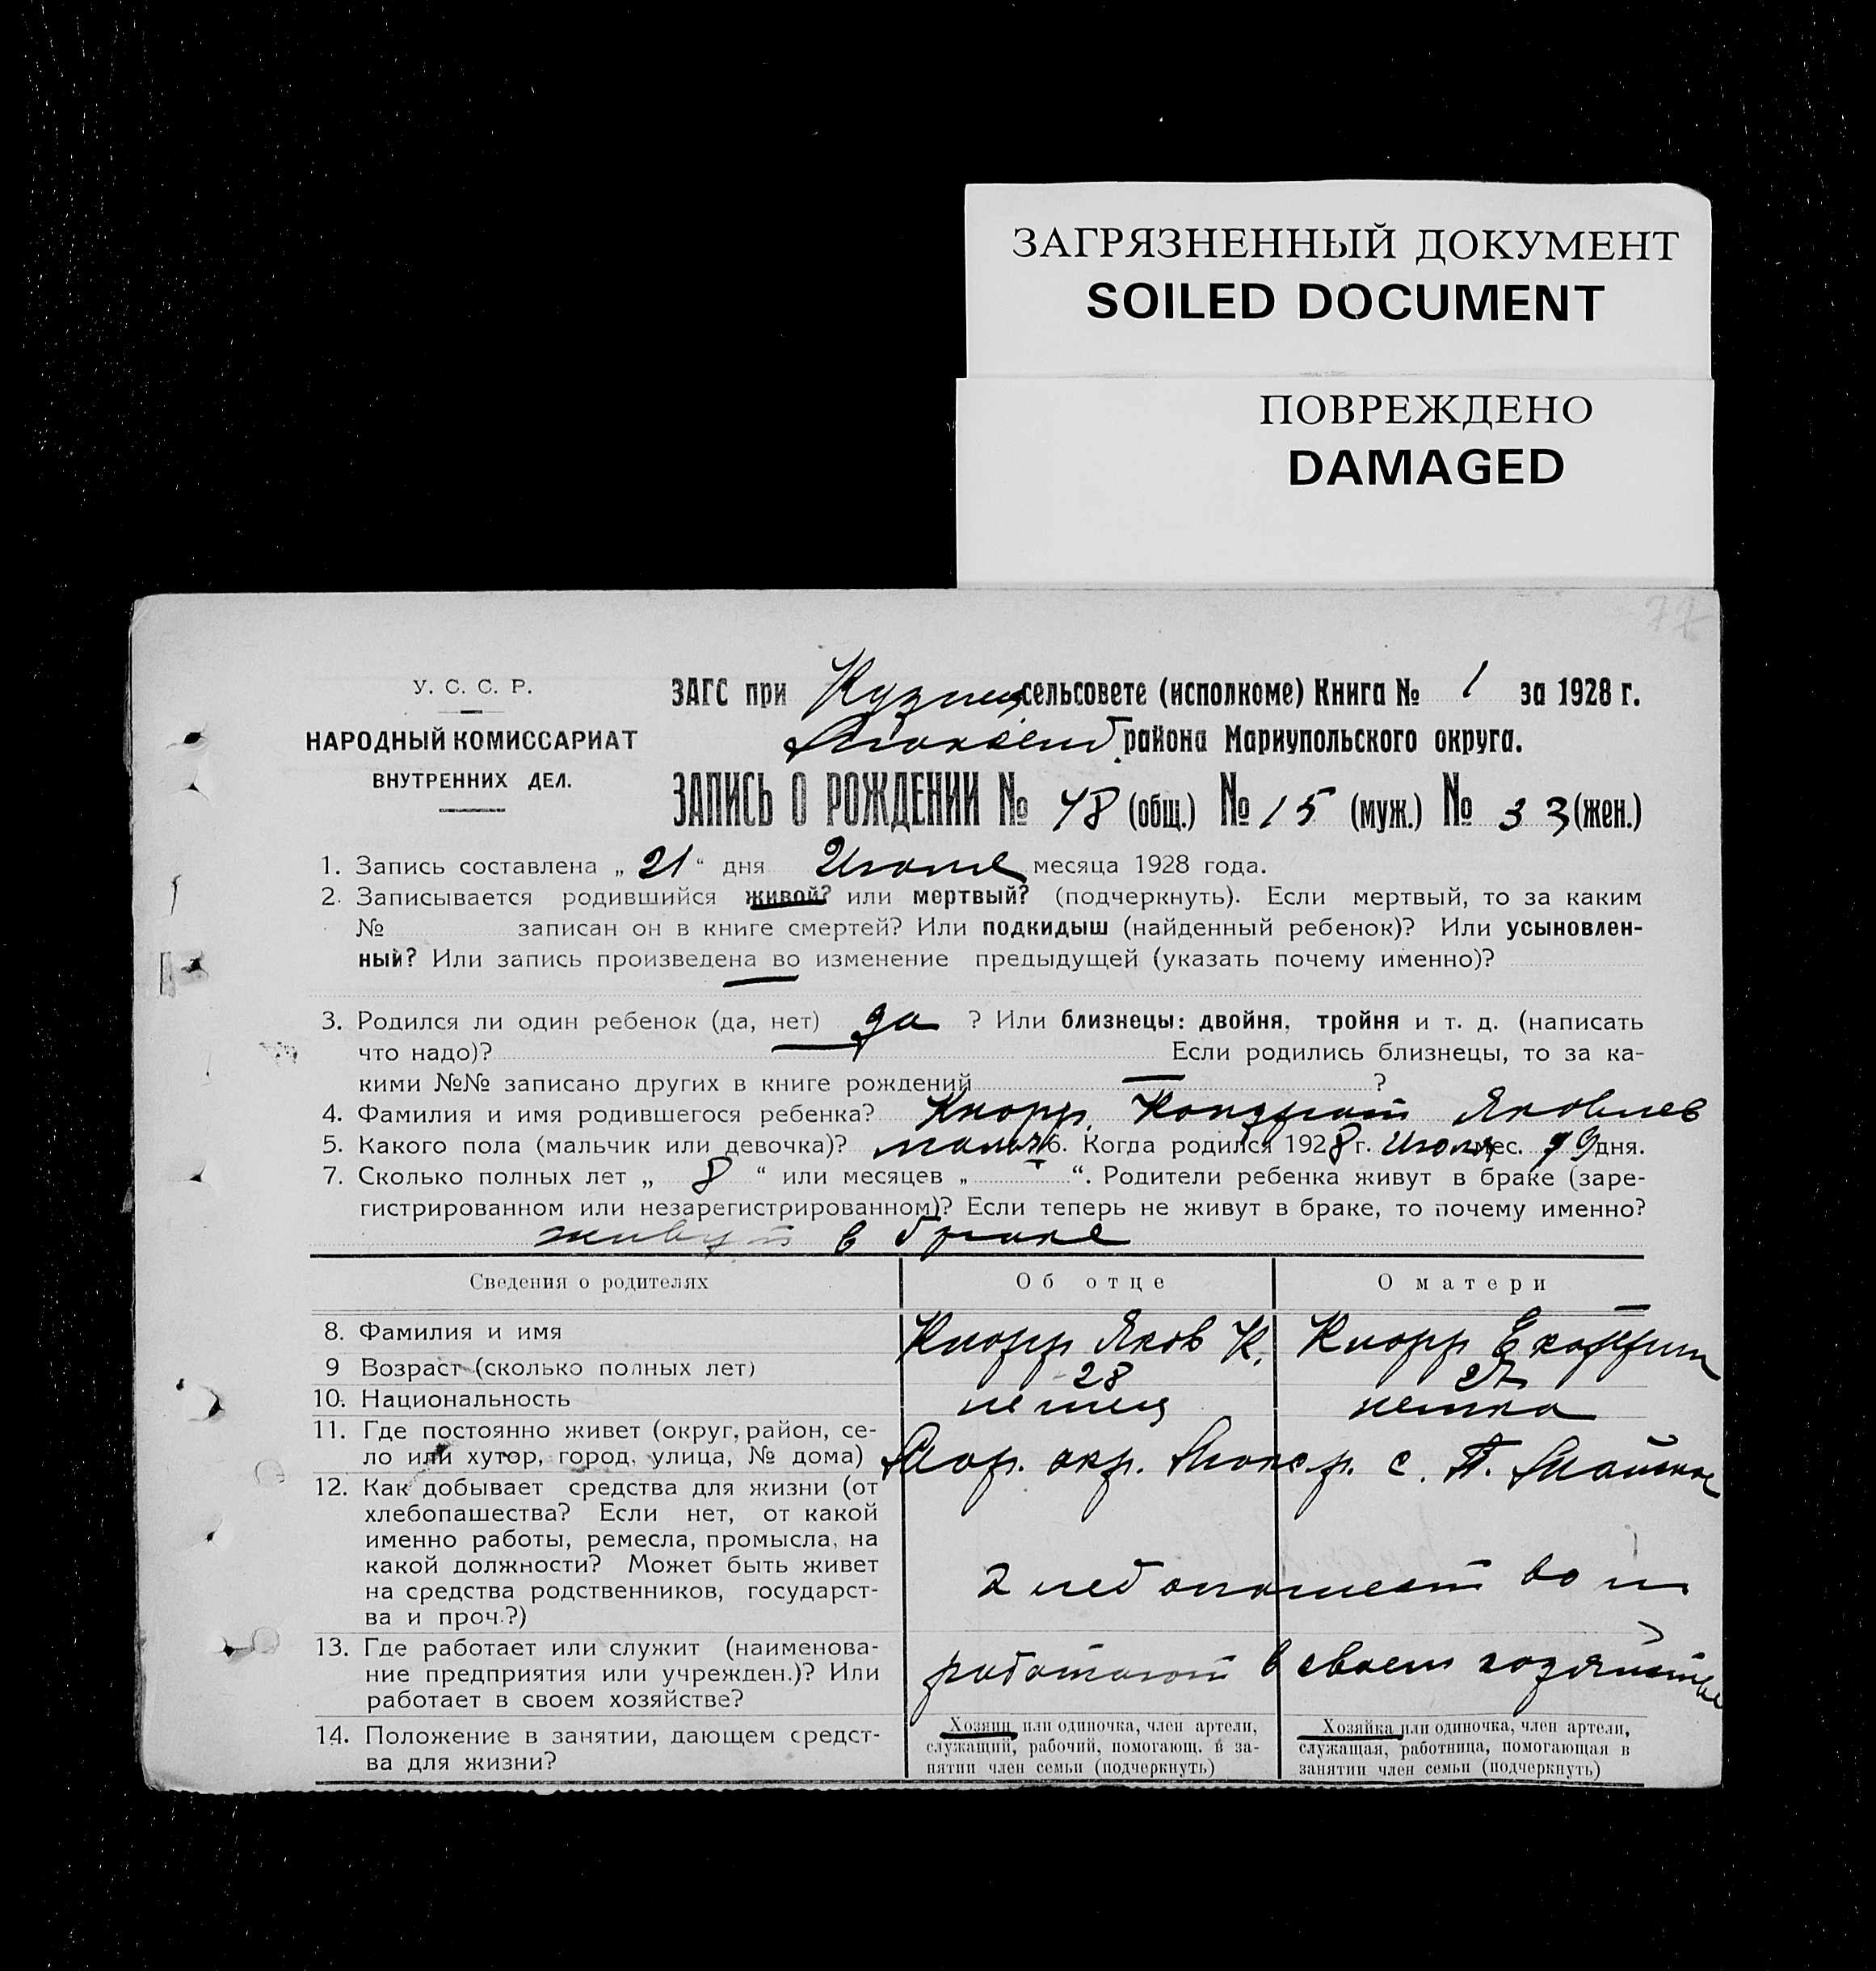 ЗАГРЯЗНЕННЫЙ ДОКУМЕНТ
SOILED DOCUMENT
ПОВРЕЖДЕНО
DAMAGED
77
У. С. С. Р.
НАРОДНЫЙ КОМИССАРИАТ
ВНУТРЕННИХ ДЕЛ.
ЗАГС при сельсовете (исполкоме) Книга № 1 за 1928 г.
района Мариупольского округа.
ЗАПИСЬ О РОЖДЕНИИ № 48 (общ.) № 15 (муж.) № 33 (жен.)
1. Запись составлена „ 21 “ дня Июля месяца 1928 года.
2. Записывается родившийся живой? или мертвый? (подчеркнуть). Если мертвый, то за каким
№ записан он в книге смертей? Или подкидыш (найденный ребенок)? Или усыновлен-
ный? Или запись произведена во изменение предыдущей (указать почему именно)?
3. Родился ли один ребенок (да, нет) да ? Или близнецы: двойня, тройня и т. д. (написать
что надо)? Если родились близнецы, то за ка-
кими №№ записано других в книге рождений — ?
4. Фамилия и имя родившегося ребенка? Кнорр Кондрат Яковлев
5. Какого пола (мальчик или девочка)? 6. Когда родился 1928 г. Июля мес. 19 дня.
7. Сколько полных лет „ 8 “ или месяцев „ “. Родители ребенка живут в браке (заре-
гистрированном или незарегистрированном)? Если теперь не живут в браке, то почему именно?
живут в браке
Сведения о родителях Об отце О матери
8. Фамилия и имя Кнорр Яков К. Кнорр
9 Возраст (сколько полных лет) 28 27
10. Национальность немец немка
11. Где постоянно живет (округ, район, се-
ло или хутор, город, улица, № дома) Мар. окр. с.
12. Как добывает средства для жизни (от
хлебопашества? Если нет, от какой
именно работы, ремесла, промысла, на
какой должности? Может быть живет
на средства родственников, государст-
ва и проч.?)
13. Где работает или служит (наименова-
ние предприятия или учрежден.)? Или
работает в своем хозяйстве?
работают в своем хозяйстве
14. Положение в занятии, дающем средст-
ва для жизни?
Хозяин или одиночка, член артели,
служащий, рабочий, помогающ. в за-
нятии член семьи (подчеркнуть)
Хозяйка или одиночка, член артели,
служащая, работница, помогающая в
занятии член семьи (подчеркнуть)